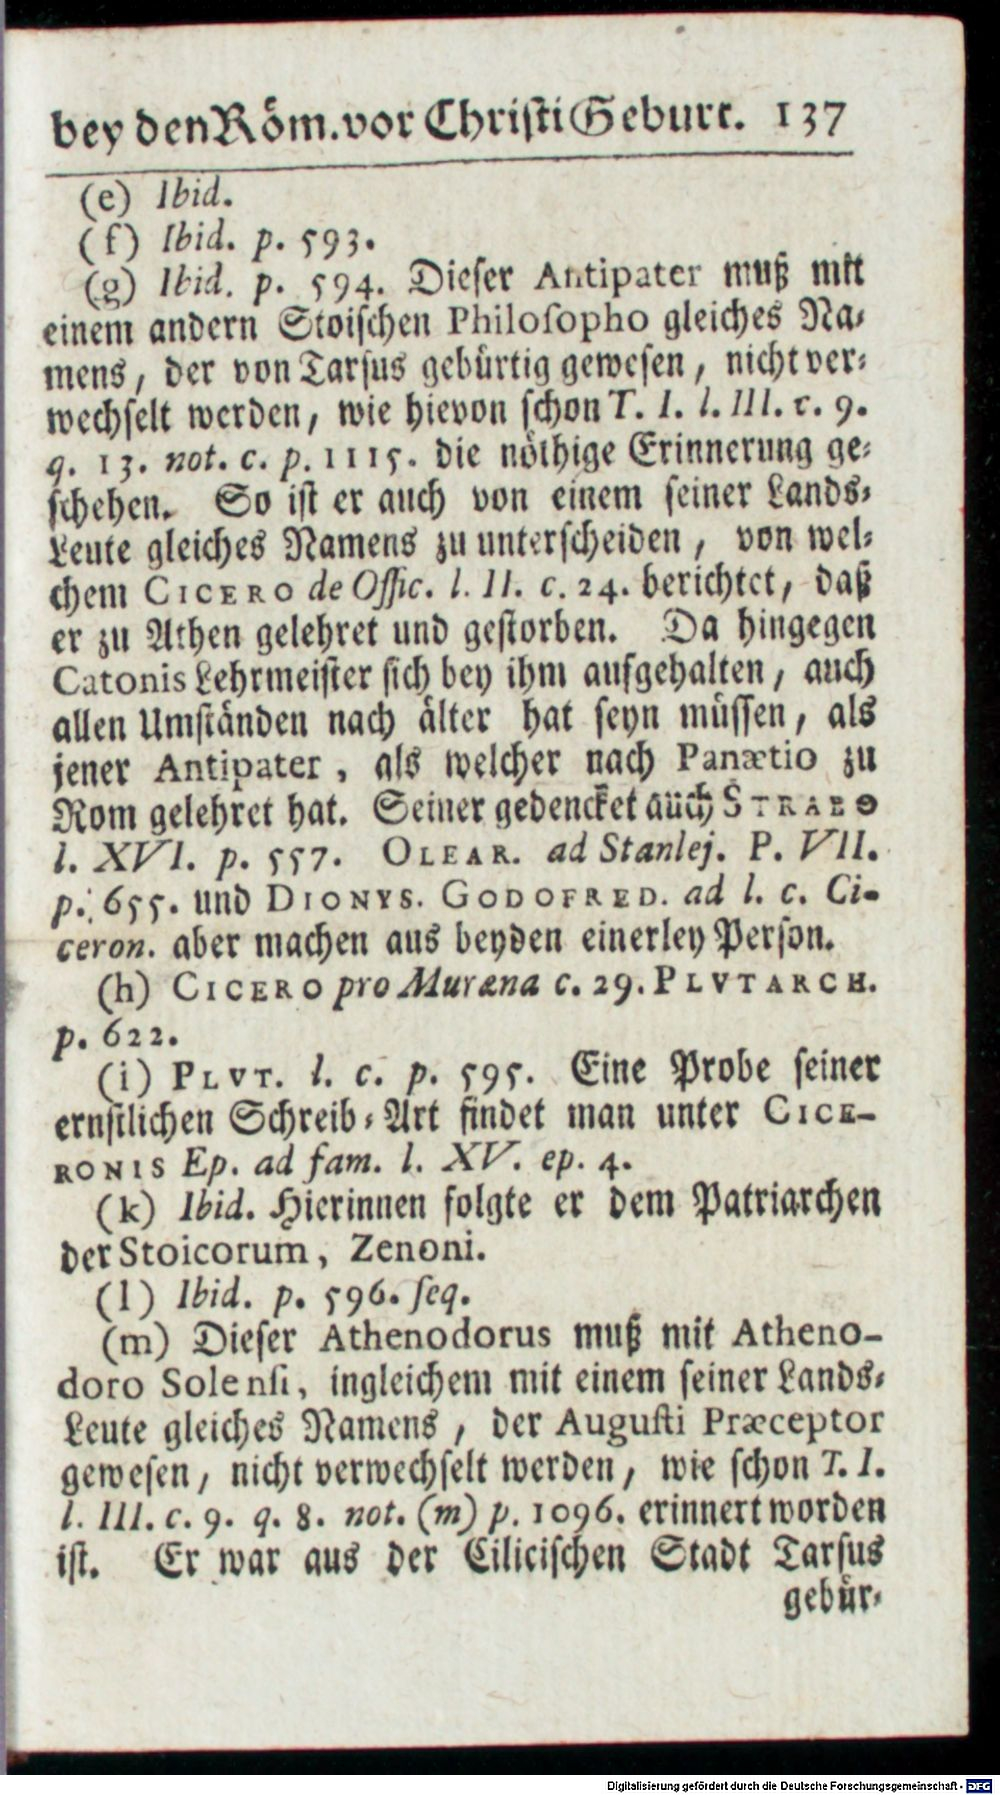 bey den Röm. vor Christi Geburt. 137
(e) Ibid.
(f) Ibid. p. 593.
(g) Ibid. p. 594. Dieser Antipater muß mit
einem andern Stoischen Philosopho gleiches Na-
mens, der von Tarsus gebürtig gewesen, nicht ver-
wechselt werden, wie hievon schon T. I. l. III. c. 9.
q. 13. not. c. p. 1115. die nöthige Erinnerung ge-
schehen. So ist er auch von einem seiner Lands-
Leute gleiches Namens zu unterscheiden, von wel-
chem CICERO de Offic. l. II. c. 24. berichtet, daß
er zu Athen gelehret und gestorben. Da hingegen
Catonis Lehrmeister sich bey ihm aufgehalten, auch
allen Umständen nach älter hat seyn müssen, als
jener Antipater, als welcher nach Panætio zu
Rom gelehret hat. Seiner gedencket auch STRABO
l. XVI. p. 557. OLEAR. ad Stanlej. P. VII.
p. 655. und DIONYS. GODOFRED. ad l. c. Ci-
ceron. aber machen aus beyden einerley Person.
(h) CICERO pro Muræna c. 29. PLVTARCH.
p. 622.
(i) PLVT. l. c. p. 595. Eine Probe seiner
ernstlichen Schreib-Art findet man unter CICE-
RONIS Ep. ad fam. l. XV. ep. 4.
(k) Ibid. Hierinnen folgte er dem Patriarchen
der Stoicorum, Zenoni.
(l) Ibid. p. 596. seq.
(m) Dieser Athenodorus muß mit Atheno-
doro Solensi, ingleichem mit einem seiner Lands-
Leute gleiches Namens, der Augusti Præceptor
gewesen, nicht verwechselt werden, wie schon T. I.
l. III. c. 9. q. 8. not. (m) p. 1096. erinnert worden
ist. Er war aus der Cilicischen Stadt Tarsus
gebür-
Digitalisierung gefördert durch die Deutsche Forschungsgemeinschaft - DFG